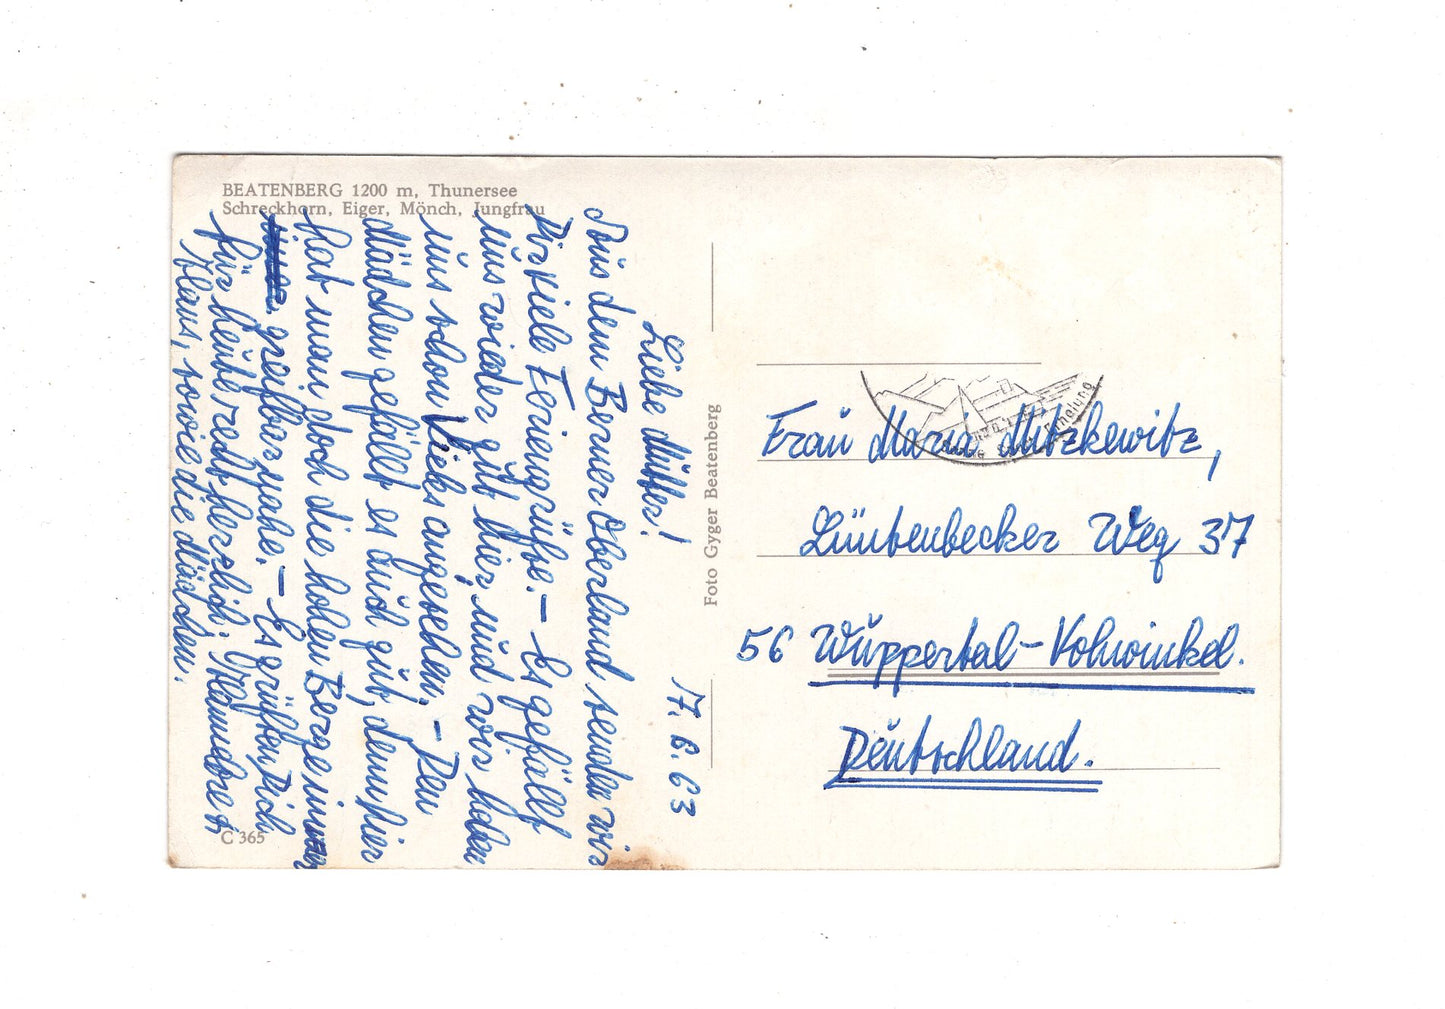 BEATENBERG 1200 m, Thunersee
Schreckhorn, Eiger, Mönch, Jungfrau
17. 6. 63
Liebe Mutter!
Aus dem Berner Oberland senden wir
Dir viele Feriengrüße. – Es gefällt
uns wieder gut hier, und wir haben
uns schon Vieles angesehen. – Den
Mädchen gefällt es auch gut, denn hier
hat man doch die hohen Berge immer
greifbar nahe. – Es grüßen Dich
für heute recht herzlich,
Klaus, sowie die Mädchen.
C 365
Foto Gyger Beatenberg
Frau Maria Mutzkewitz,
Lüntenbecker Weg 37
56 Wuppertal-Vohwinkel.
Deutschland.